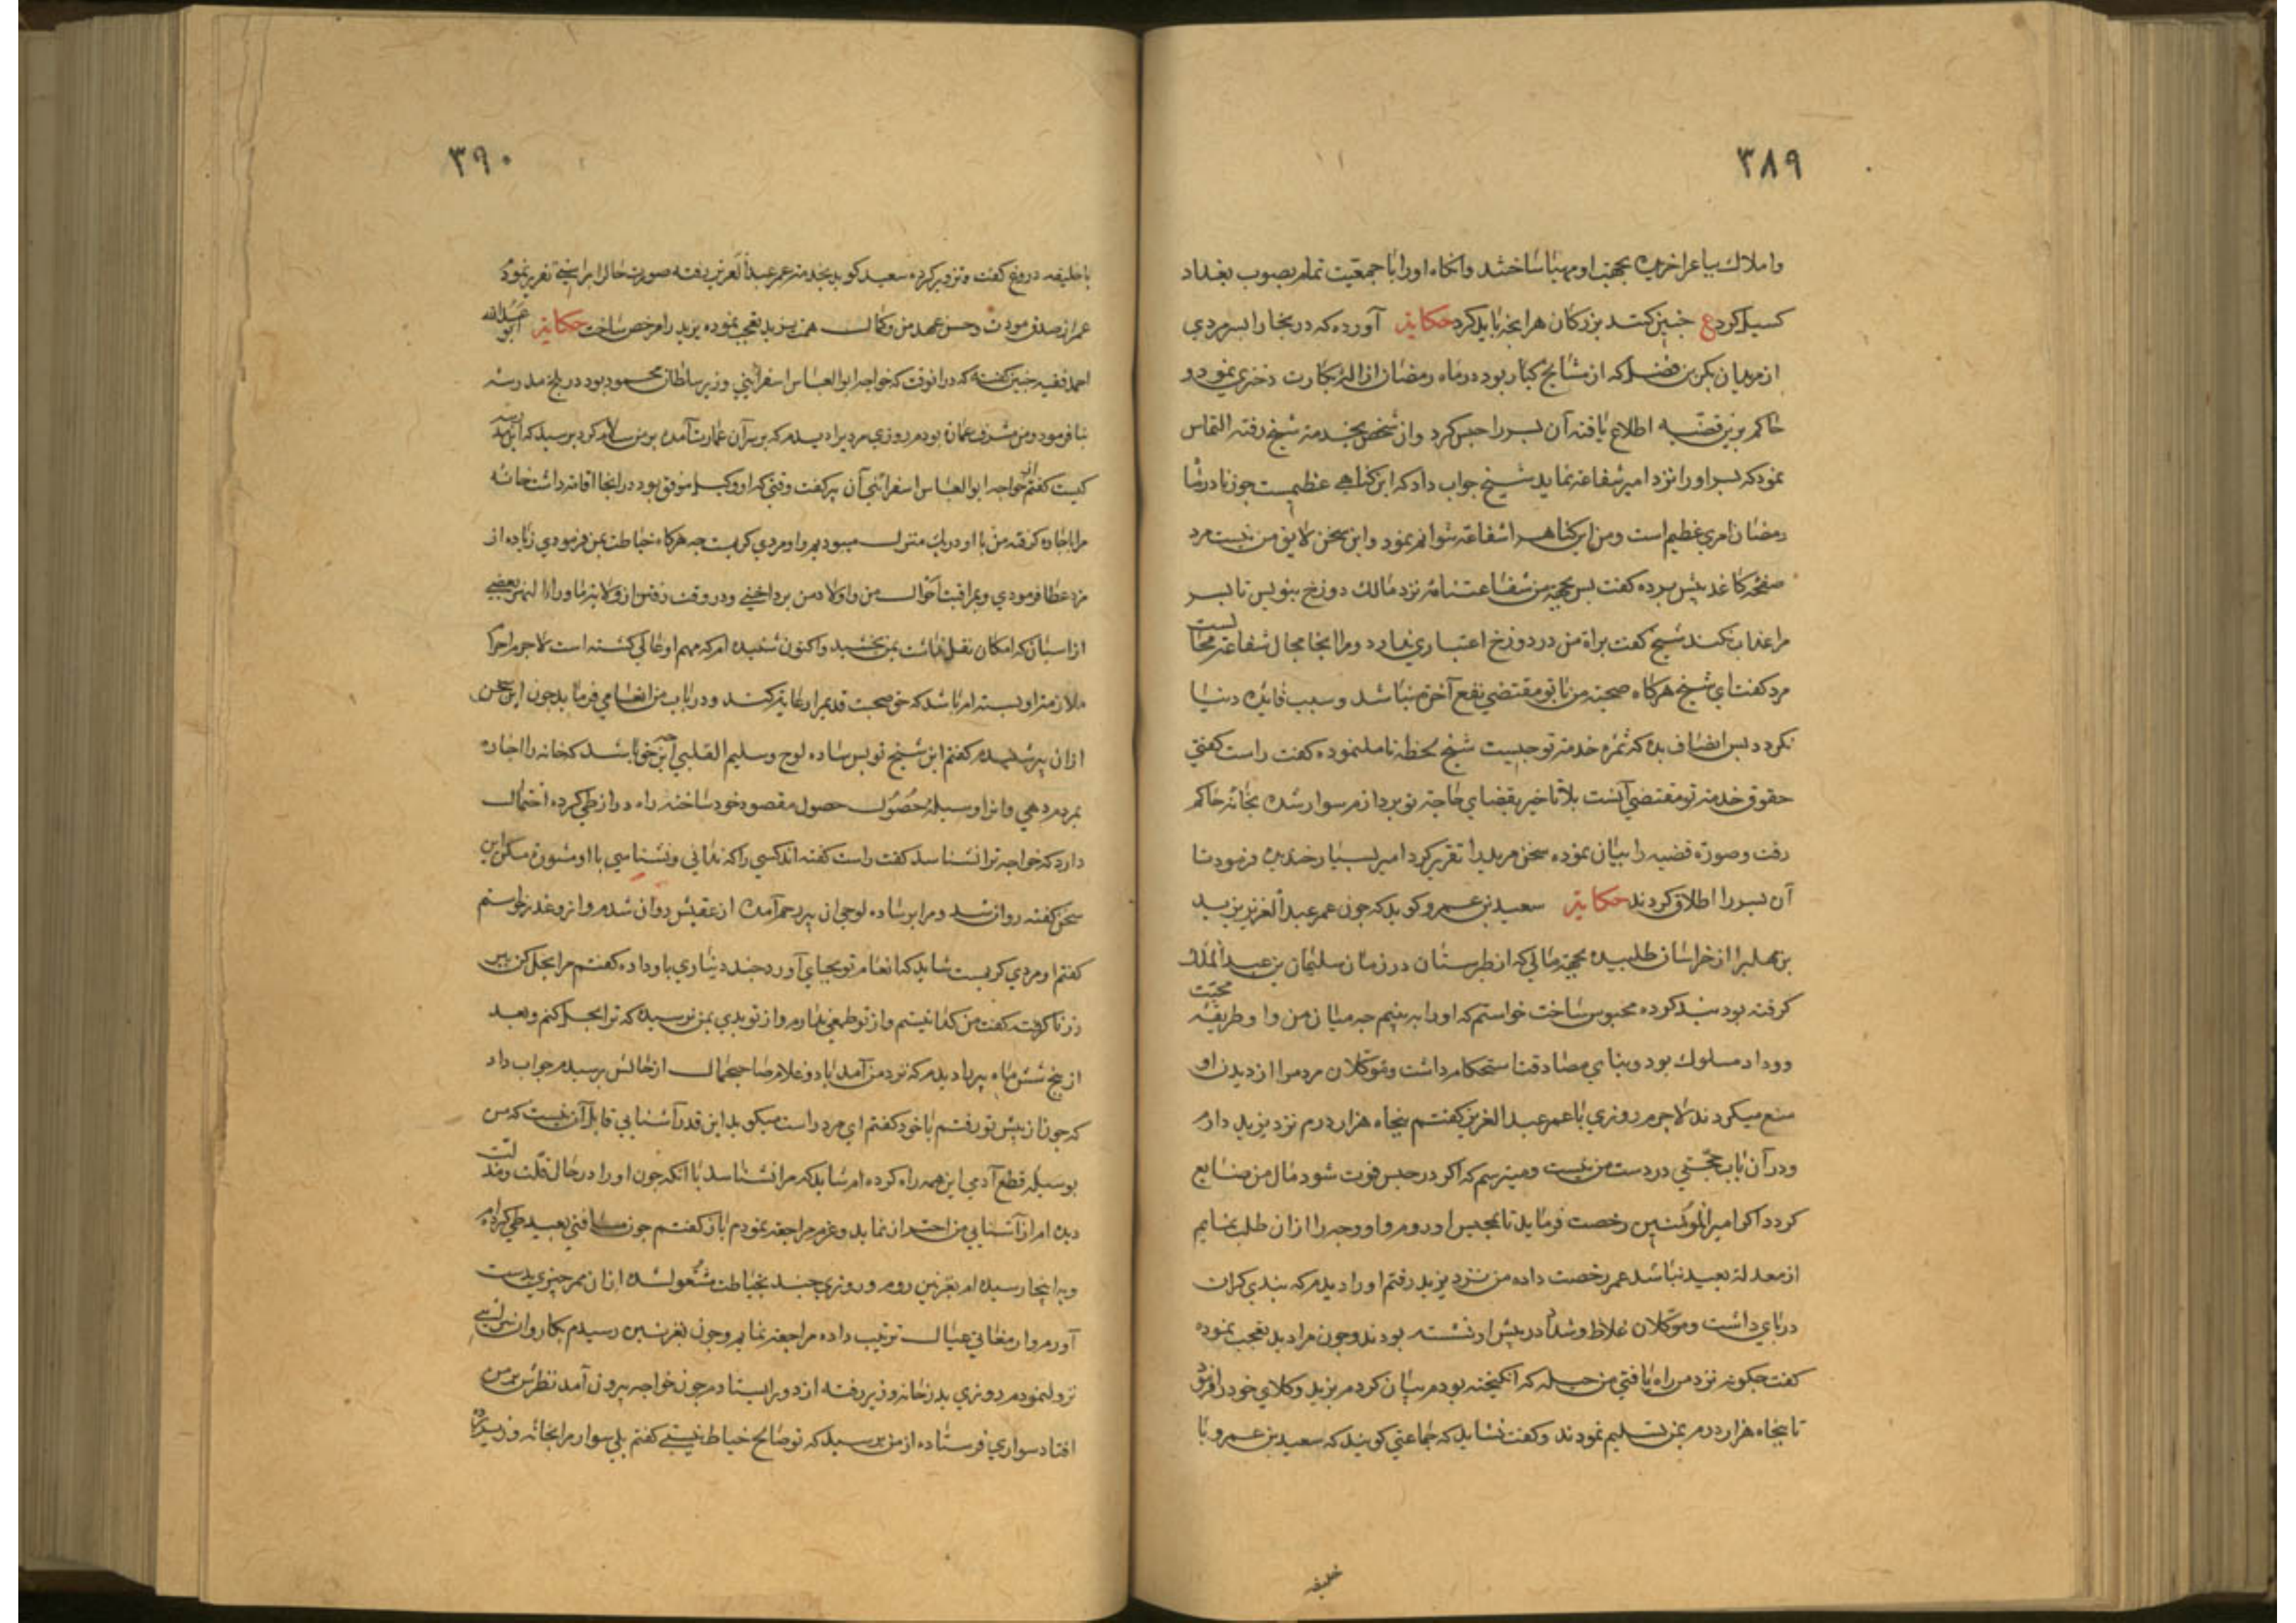 ٣٨٩
واملاك بیاعرا خریده بجهت او مهیا ساختند وانکاه اورا با جمعیت تمام بصوب بغداد
کسیل کرد ع چنین کنند بزرکان هرانچه باید کرد حکایة آورده که در بخارا پسر مردي
از مریدان بکر بن فضل که از مشایخ کبار بود در ماه رمضان ازاله بکارت دختري نمود و
حاکم برین قضیه اطلاع یافته آن پسر را حبس کرد وآن شخص بخدمة شیخ رفته التماس
نمود که پسر اورا نزد امیر شفاعة نماید شیخ جواب داد که این کناهي عظیمست چه زنا در ماه
رمضان امري عظیم است ومن این کناه را شفاعة نتوانم نمود واین سخن لایق من نیست مرد
صفحه کاغذ پیش برده کفت پس بجهة من شفاعتنامه نزد مالك دوزخ بنویس تا پسر
مرا عذاب نکند شیخ کفت براة من در دوزخ اعتباري ندارد ومرا انجا مجال شفاعة محالست
مرد کفت اي شیخ هرکاه صحبة من با تو مقتضي نفع آخرة نباشد وسبب فایده دنیا
نکردد پس انصاف بده که ثمره خدمة تو چیست شیخ لحظه تامل نموده کفت راست کفتي
حقوق خدمة تو مقتضي آنست بلا تاخیر بقضاي حاجة تو پردازم سوار شده بخانه حاکم
رفت وصورة قضیه را بیان نموده سخن مرید را تقریر کرد امیر بسیار خندیده فرمود تا
آن پسر را اطلاق کردند حکایة سعید بن عمرو کوید که چون عمر عبد العزیز یزید
بن مهلب را از خراسان طلبیده بجهة مالي که از طبرستان در زمان سلیمان بن عبد الملك
کرفته بود بند کرده محبوس ساخت خواستم که اورا ببینم چه میان من و او طریقه محبت
ووداد مسلوك بود وبناي مصادقت استحکام داشت وموکلان مردم را از دیدن او
منع میکردند لاجرم روزي با عمر عبد العزیز کفتم پنجاه هزار درم نزد یزید دارم
ودر آن باب حجتي در دست من نیست ومیترسم که اکر در حبس فوت شود مال من ضایع
کردد اکر امیر المؤمنین رخصت فرماید تا بمجلس او روم و او وجه را از ان طلب نمایم
از معدلة بعید نباشد عمر رخصت داده من نزد یزید رفتم اورا دیدم که بندي کران
در پاي داشت وموکلان غلاظ وشداد در پیش او نشسته بودند وچون مرا دید تعجب نموده
کفت چکونه نزد من راه یافتي من حیله که انکیخته بودم بیان کردم یزید وکلاي خود را فرمود
تا پنجاه هزار درم بمن تسلیم نمودند وکفت نشاید که جماعتي کویند که سعید بن عمرو با
خلیفه
٣٩٠
با خلیفه دروغ کفت وتزویر کرده سعید کوید بخدمة عمر عبد العزیز رفته صورت حال را براستي تقریر نمودم
عمر از صدق مودت وحسن عهد من وکمال همت یزید تعجب نموده یزید را مرخص ساخت حکایة ابو عبد الله
احمد فقیه چنین کفته که در انوقت که خواجه ابو العباس اسفرائني وزیر سلطان محمود بود در بلخ مدرسه
بنا فرمود ومن مشرف عمارت بودم روزي مرد پیرا دیدم که بر سر آن عمارت آمده بر من سلام کرد پرسید که این مدرسه
کیست کفتم از خواجه ابو العباس اسفرائني آن پیر کفت وقتي که او وکیل موفق بود در انجا اقامة داشت خانه
مرا باجاره کرفته من با او در یك منزل میبودیم واو مردي کریمست چه هرکاه خیاطت بمن فرمودي زیاده از
مزد عطا فرمودي وبمراقبت احوال من واولاد من پرداختي ودر وقت رفتن از ولایة ماوراء النهر بعضي
از اسباب که امکان نقل نداشت بمن بخشید واکنون شنیده ام که مهم او عالي کشته است لاجرم احرام
ملازمة او بسته ام باشد که حق صحبت قدیم را رعایة کند ودر باب من انعامي فرماید چون این سخن
ازان پیر شنیدم کفتم این شیخ تو بس ساده لوح وسلیم القلبي این چه خو باشد که خانه را اجاره
بمردم دهي وانرا وسیله حصول حصول مقصود خود ساخته راه دراز طي کرده احتمال
دارد که خواجه ترا نشناسد کفت راست کفته اند کسي را که ندانی ونشناسي با او مشورة مکن این
سخن کفته روان شد ومرا بر ساده لوحي ان پیر رحم آمده از عقبش روان شدم واز وعذر خواستم
کفتم او مردي کریمست شاید که انعام تو بجاي آورد چند دیناري باو داده کفتم مرا بحل کن پیر
زر نا کرفته کفت من کدا نیستم واز تو طمعي ندارم واز تو بدي بمن نرسیده که ترا بحل کنم وبعد
از پنج شش ماه پیر را دیدم که نزد من آمد با دو غلام صاحب جمال از حالش پرسیدم جواب داد
که چون از پیش تو رفتم با خود کفتم اي مرد راست میکوید این قدر آشنایي قابل آن نیست که من
بوسیله قطع آدمي این همه راه کرده ام شاید که مرا نشناسد با انکه چون اورا در حال قلت ومذلت
دیده ام از آشنایي من احتراز نماید وعزم مراجعة نمودم باز کفتم چون مسافتي بعید طي کرده ام
وبه اینجا رسیده ام بغزنین روم وروزي چند بخیاطت مشغول شده ازان ممر چیزي بدست
آورم وارمغاني عیال ترتیب داده مراجعة نمایم وچون بغزنین رسیدم بکاروان سرائي
نزول نمودم روزي بدر خانه وزیر رفته از دور ایستادم چون خواجه بیرون آمد نظرش بر من
افتاد سواري فرستاده از من پرسید که تو صالح خیاط نیستي کفتم بلي سوار مرا بخانه وزیر برد